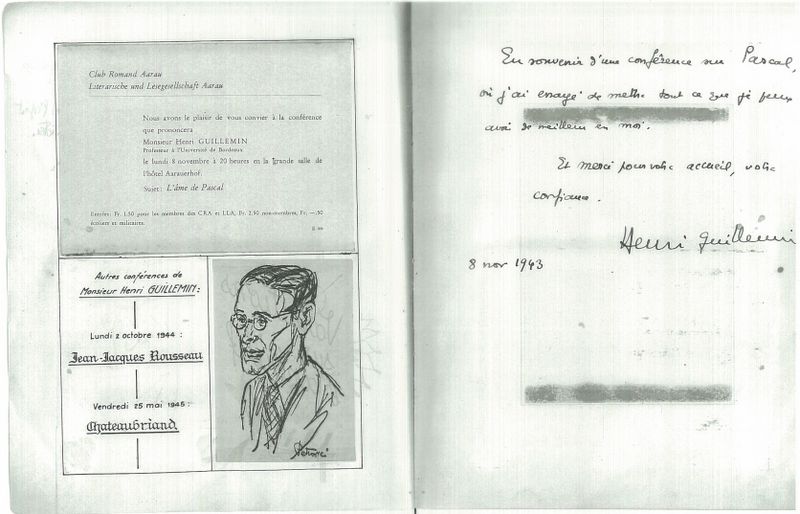 Club Romand Aarau
Literarische und Lesegesellschaft Aarau
Nous avons le plaisir de vous convier à la conférence
que prononcera
Monsieur Henri GUILLEMIN
Professeur à l'Université de Bordeaux
le lundi 8 novembre à 20 heures en la grande salle de
l'hôtel Aarauerhof.
Sujet: L'âme de Pascal
Entrées: Fr. 1.50 pour les membres des CRA et LLA, Fr. 2.50 non-membres, Fr. —.50
écoliers et militaires.
Autres conférences de
Monsieur Henri GUILLEMIN:
Lundi 2 octobre 1944 :
Jean-Jacques Rousseau
Vendredi 25 mai 1945 :
Chateaubriand
En souvenir d'une conférence sur Pascal,
où j'ai essayé de mettre tout ce que je peux
avoir de meilleur en moi.
Et merci pour votre accueil, votre
confiance.
Henri Guillemin
8 nov 1943